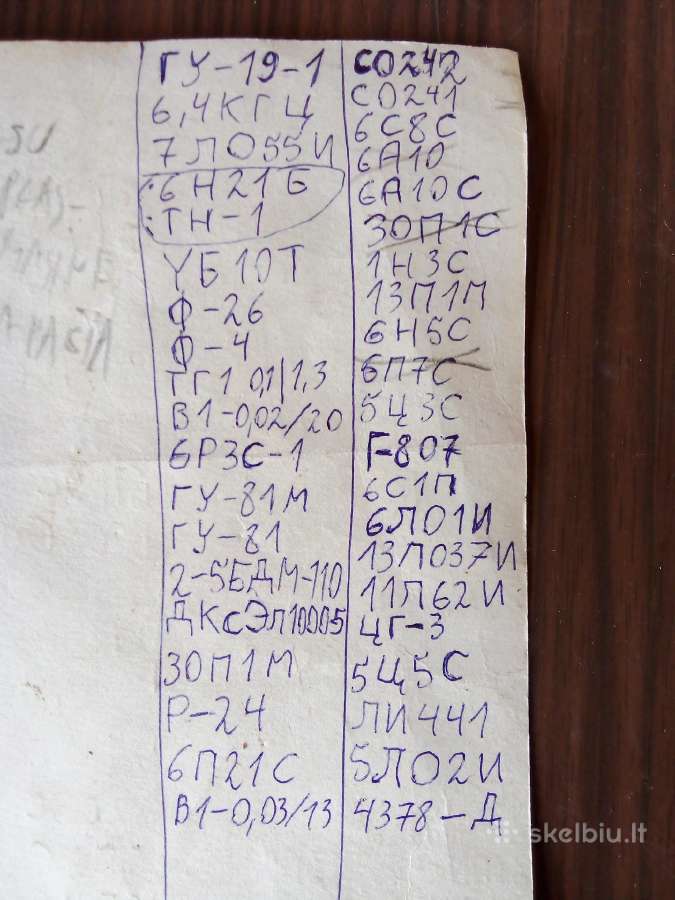 ГУ-19-1
6,4КГЦ
7ЛО55И
6Н21Б
ТН-1
УБ10Т
Ф-26
Ф-4
ТГ1 0,1/1,3
В1-0,02/20
6Р3С-1
ГУ-81М
ГУ-81
2-5БДМ-110
ДКсЭл10005
30П1М
Р-24
6П21С
В1-0,03/13
СО242
СО241
6С8С
6А10
6А10С
30П1С
1Н3С
13П1П
6Н5С
6П7С
5Ц3С
Г-807
6С1П
6ЛО1И
13ЛО37И
11Л62И
ЦГ-3
5Ц5С
ЛИ441
5ЛО2И
4378-Д
skelbiu.lt